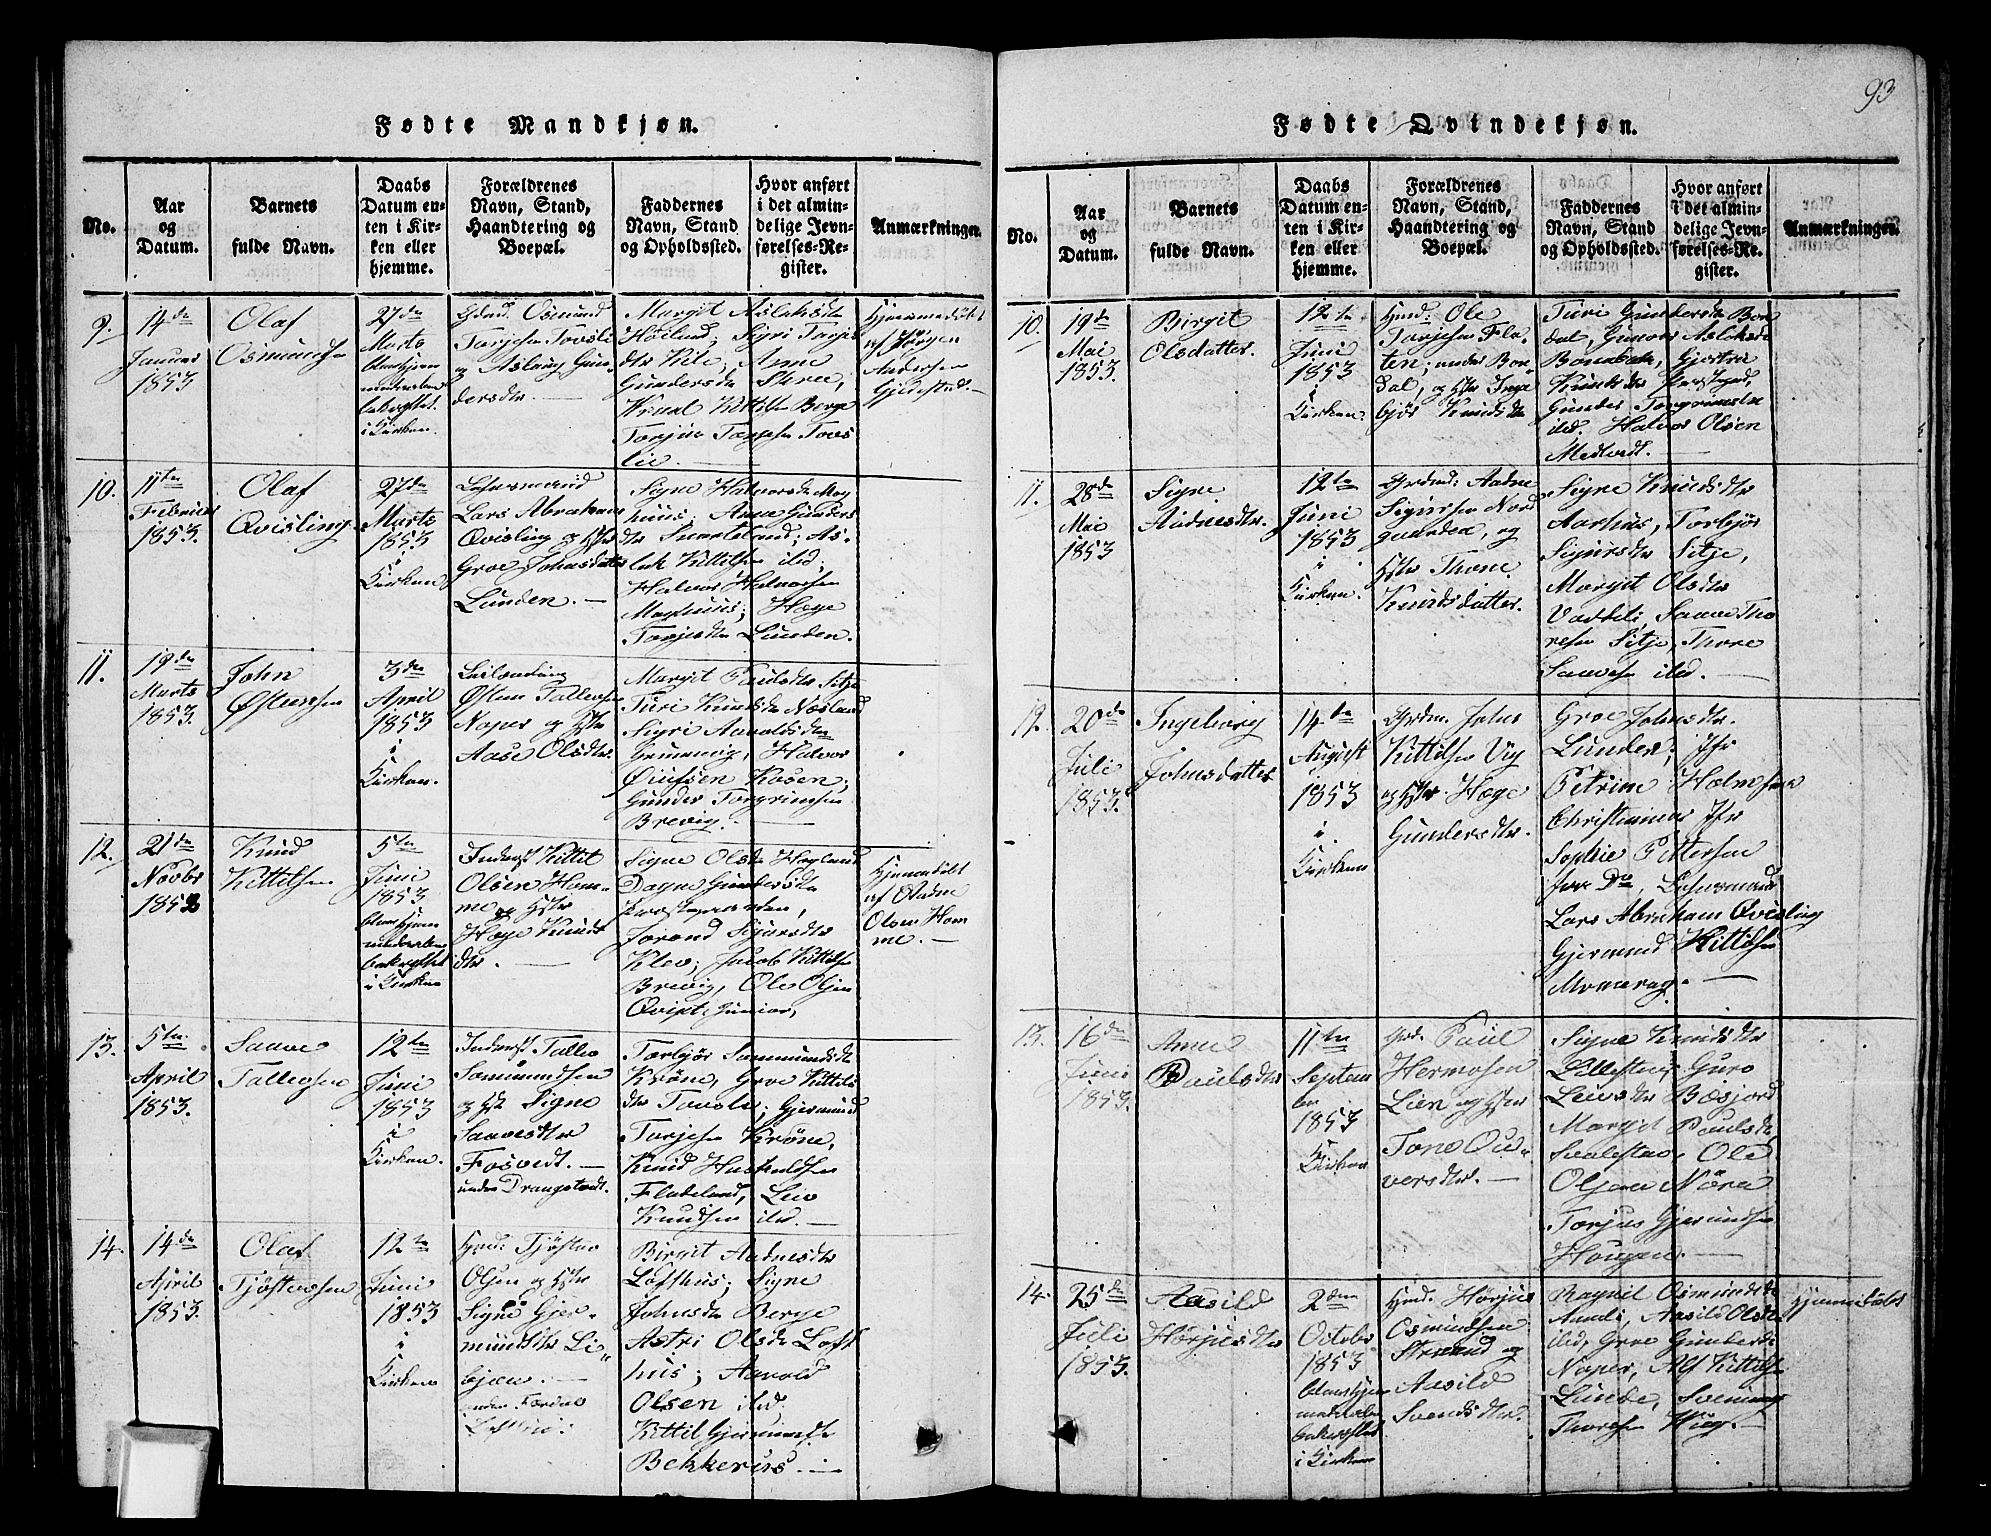 93
Fødte Mandkjøn.
No.
Aar
og
Datum.
Barnets
fulde Navn.
Daabs
Datum en-
ten i Kir-
ken eller
hjemme.
Forældrenes
Navn, Stand,
Haandtering og
Boepæl.
Faddernes
Navn, Stand
og Opholdssted.
Hvor anført
i det almin-
delige Jevn-
førelses-Re-
gister.
Anmærkninger.
9.
14de
Januar
1853
Olaf
Osmundsen
27de
Marts
1853
i Kirken.
Osmund
Torjesen Tovsli
og Aslaug Gun-
dersdtr.
Margit Aslaksdtr
Høilund; Sigri Torjus
dtr Kile; Anne
Gundersdtr Skree,
Knud Kittilsen Berge
Torjus Torjesen Tovs
lie.
Hjemmedøbt
af Jørgen
Andersen
10.
11te
Februar
1853.
Olaf
Qvisling
27de
Marts
1853
i
Kirken
Lehnsmand
Lars Abraham
Qvisling og Hstr
Groe Johnsdatter
Lunden.
Signe Halvorsdtr Mog
huus; Anne Gunders
dtr Svartelund; As-
lak Kittilsen ibd.
Halvor Halvorsen
Moghuus; Hæge
Torjesdtr Lunden.
11.
19de
Marts
1853.
John
Østensen
3de
April
1853
i
Kirken.
Leilænding
Østen Tallegsen
Naper og Hstr
Aase Olsdtr.
Margit Paulsdtr Sitje
Turi Knudsdtr Næsland
Sigri Aavoldsdtr
Halvor
Kosen;
Gunder Torgrimsen
Brevig.
12.
21de
Novbr
1852
Knud
Kittilsen
5te
Juni
1853
i Kirken
Inderst Kittil
Olsen Hom-
me og Hstr
Hæge Knuds
dtr.
Signe Olsdtr Høgland
Dagne Gundersdtr
Præstegaarden,
Jorand Sigursdtr
Klev; Jacob Kittilsen
Brevig, Ole Olsen
Qvipt, Junior,
Hjemmedøbt
af Aadne
Olsen Hom
me.
13.
5te
April
1853.
Saave
Tallegsen
12te
Juni
1853
i
Kirken.
Inderst Talleg
Sammundsen
og Hstr Signe
Saavesdtr
Fosvedt.
under Draugstvedt.
Torbjør Sammundsdtr
Krone, Groe Kittils
dtr Tovsle; Gjermund
Torjesen Krone,
Knud
Fladeland, Leiv
Knudsen ibd.
14.
14de
April
1853.
Olaf
Tjøstovsen
12te
Juni
1853
i
Kirken
Hmd. Tjøstov
Olsen og Hstr
Signe Gjer-
mundsdtr Li-
bjæn.
Birgit Aadnesdtr
Lofthus; Signe
Johnsdtr Berge
Astri Olsdtr Loft
hus; Aavold
Olsen ibd.
Kittil Gjermundsen
Bekkerius.
Fødte Qvindekjøn.
No.
Aar
og
Datum.
Barnets
fulde Navn.
Daabs
Datum en-
ten i Kir-
ken eller
hjemme.
Forældrenes
Navn, Stand,
Haandtering og
Boepæl.
Faddernes
Navn, Stand
og Opholdssted.
Hvor anført
i det almin-
delige Jevn-
førelses-Re-
gister.
Anmærkninger.
10.
19de
Mai
1853.
Birgit
Olsdatter.
12te
Juni
1853
i
Kirken.
Hmd. Ole
Torjesen Fla-
ten; under Bon-
dal, og Hstr Inge
bjør Knudsdtr
Turi Gundersdtr Bon
dal, Gunvor Aslaksdtr
Bonebak,
Knudsdtr
Gunder Torgrimsen
ibd. Halvor Olsen
Midtvedt.
11.
28de
Mai
1853
Signe
Aadnesdtr.
12te
Juni
1853
i
Kirken.
Grdmd. Aadne
Sigursen Nord
gaarden, og
Hstr Thone
Knudsdatter.
Signe Knudsdtr
Aarhus, Torbjør
Sigursdtr Sitje,
Margit Olsdtr
Vadbeli, Saave Tho
resen Sitje, Thore
Saavesen ibd.
12.
20de
Juli
1853.
Ingeborg
Johnsdatter
14de
August
1853
i
Kirken
Grdm. John
Kittilsen Vig
og Hstr. Hæge
Gundersdtr.
Groe Johnsdtr.
Lunden; Jfr
Petrine Holmsen
Christianssen Jfr
Sophie Pettersen
Do, Lehnsmand
Lars Abraham Qvisling
Gjermund Kittilsen
Momrag.
13.
16de
Juni
1853.
Anne
Paulsdtr
11te
Septem
ber
1853
i
Kirken
Grd. Paul
Hermosen
Lien og Hstr
Tone Ou-
versdtr.
Signe Knudsdtr
Lillestue, Guro
Leivsdtr Bæsjord
Margit Paulsdtr
Ole
Olsen Nöra
Torjus Gjermundsen
Hougen.
14.
25de
Juli
1853.
Aasild
Horjusdtr
2den
October
1853
i Kirken
Hmd. Horjus
Osmundsen
Strand og
Aasild
Svendsdtr.
Ragnil Osmundsdtr
Aamli, Aasild Olsdtr
ibd, Groe Gundersdtr
Naper, Alf Kittilsen
Lunde, Svenung
Thoresen Vig.
Hjemmedøbt